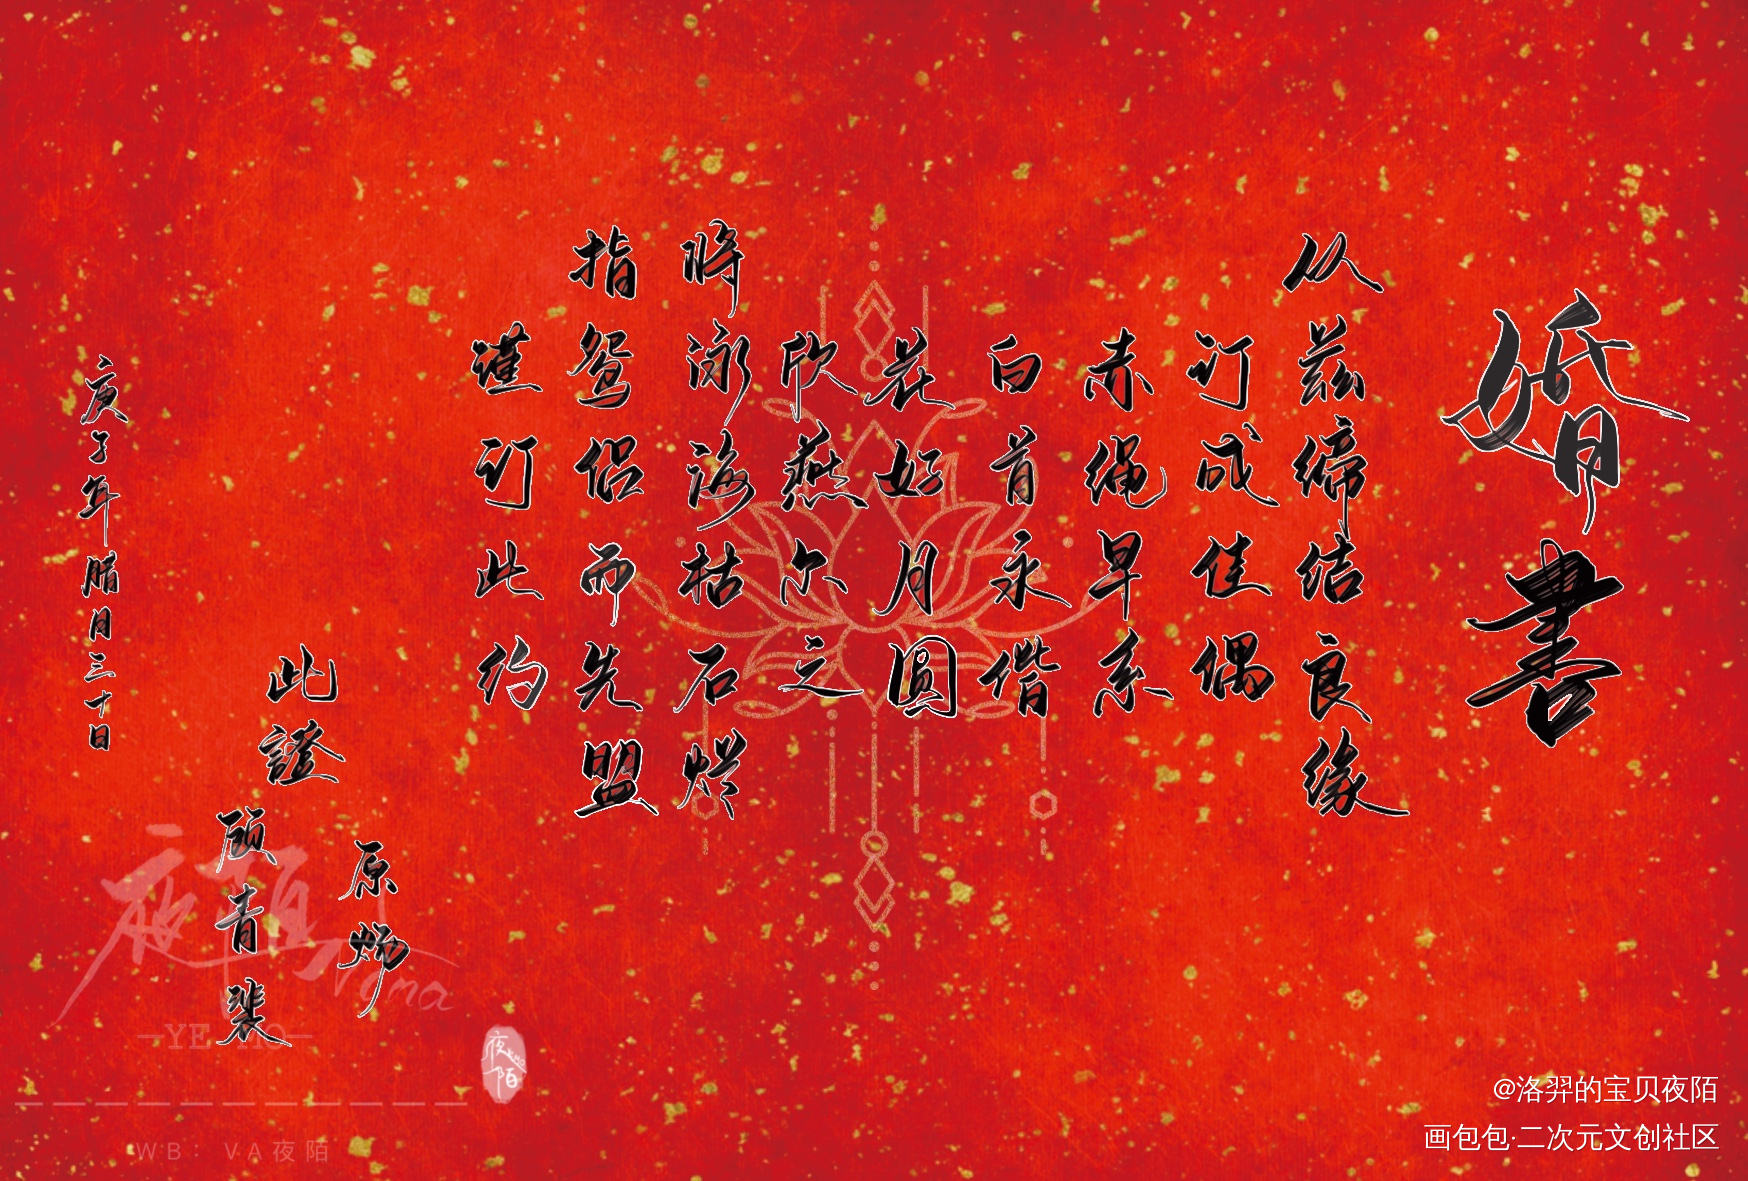 婚書
从兹缔结良缘
订成佳偶
赤绳早系
白首永偕
花好月圆
欣燕尔之
将泳海枯石烂
指鸳侣而先盟
谨订此约
原炀
顾青裴
此證
庚子年腊月三十日
夜陌
YE MO
夜陌
WB：VA夜陌
@洛羿的宝贝夜陌
画包包·二次元文创社区